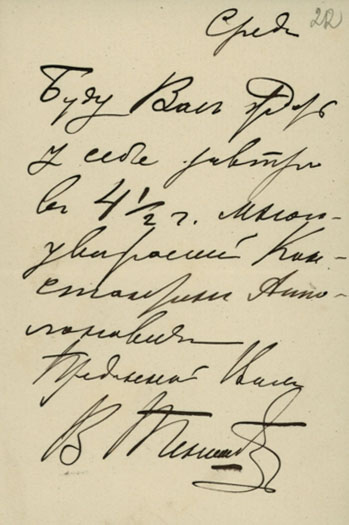 Среда 22
Буду Васъ ждать
у себя завтра
въ 4 1/2 ч. Много-
уважаемый Кон-
стантинъ Аппо-
лоновичъ
Преданный Вамъ
В